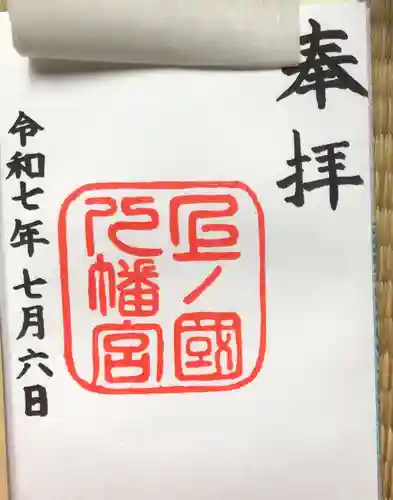 奉拝
上ノ國
八幡宮
令和七年七月六日